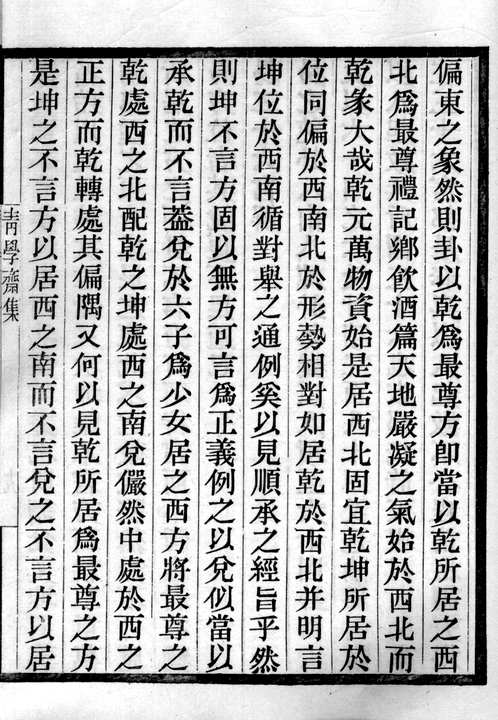 偏東之象然則卦以乾爲最尊方卽當以乾所居之西
北爲最尊禮記鄉飮酒篇天地嚴凝之氣始於西北而
乾彖大哉乾元萬物資始是居西北固宜乾坤所居於
位同偏於西南北於形勢相對如居乾於西北并明言
坤位於西南循對舉之通例奚以見順承之經旨乎然
則坤不言方固以無方可言爲正義例之以兌似當以
承乾而不言葢兌於六子爲少女居之西方將最尊之
乾處西之北配乾之坤處西之南兌儼然中處於西之
正方而乾轉處其偏隅又何以見乾所居爲最尊之方
是坤之不言方以居西之南而不言兌之不言方以居
靑學齋集